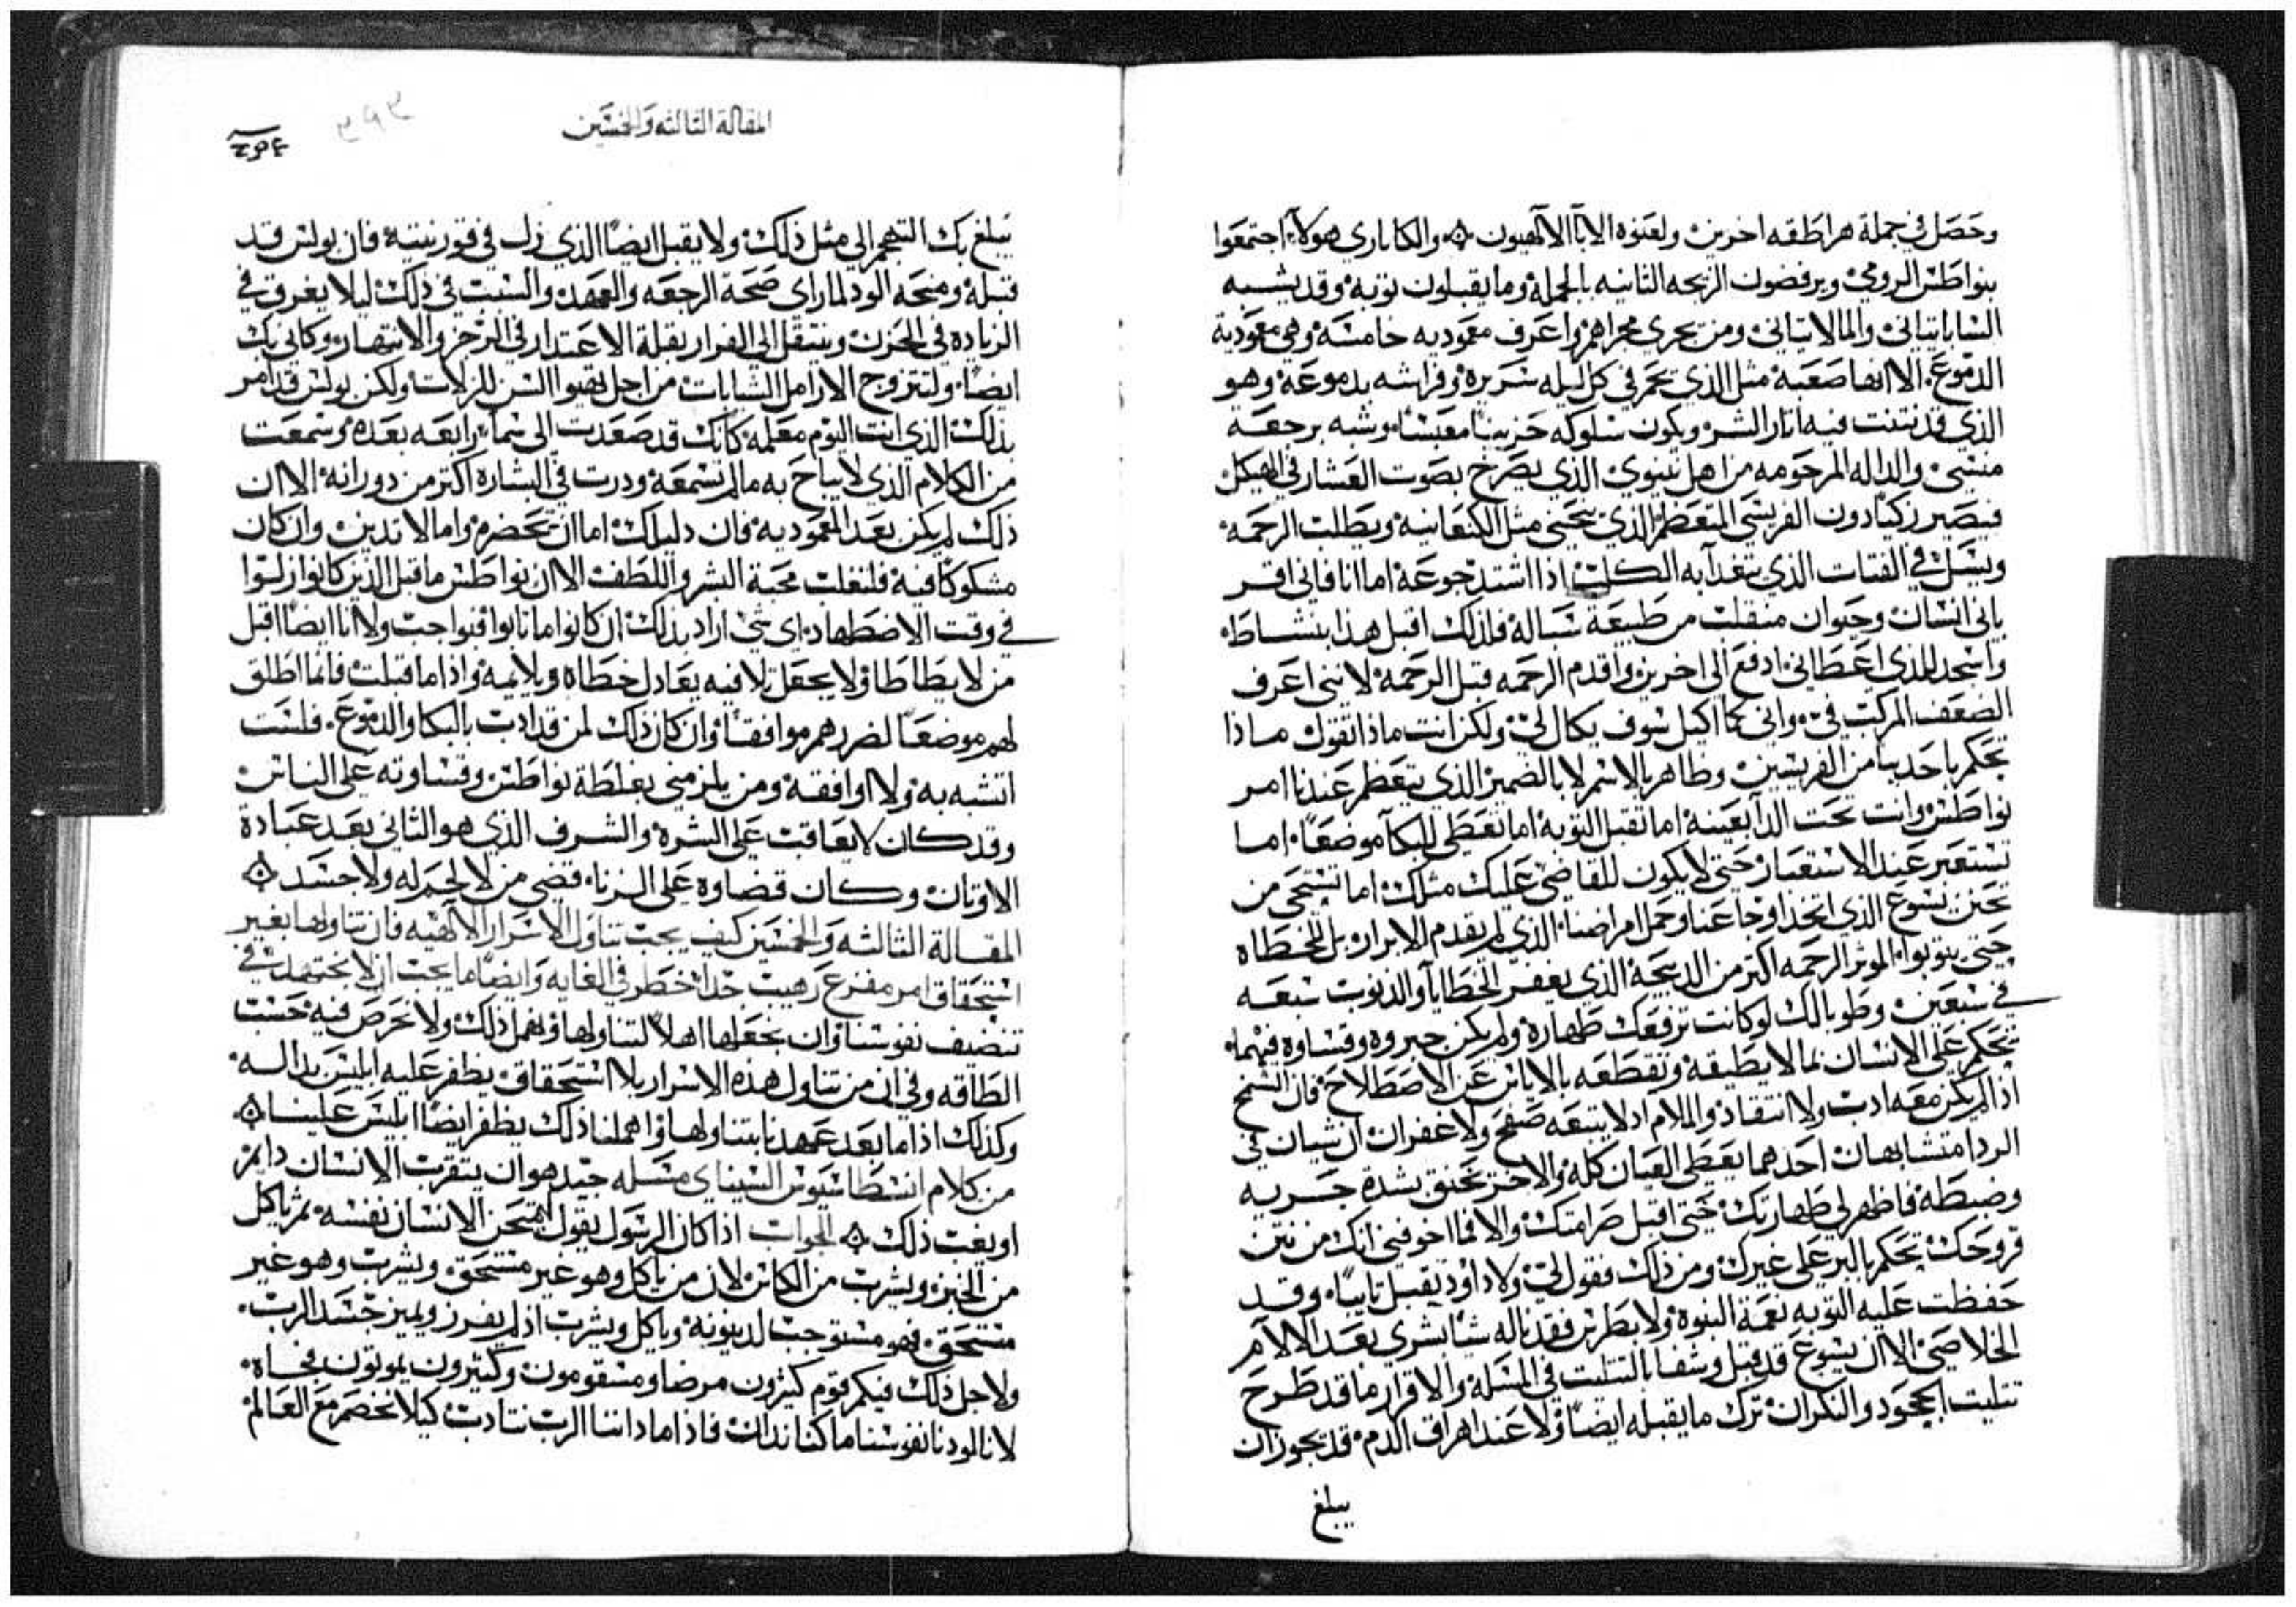 وحصل في جملة هراطقه اخرين ولعنوه الابآ الالهيون ۞ والكاثاري هولآء اجتمعوا
بنواطس الرومي ويرفضون الزيجه الثانيه بالجملة وما يقبلون توبة وقد يشبه
الساباتياني والمالاتياني ومن يجري مجراهم واعرف معموديه خامسة وهي معمودية
الدموع الا انها صعبة مثل الذي يحمر في كل ليله سريره وفراشه بدموعه وهو
الذي قد نتنت فيه اثار الشر ويكون سلوكه حزينا معبسا وشبه برجعة
منسي والداله المرحومه من اهل نينوى الذي يصرخ بصوت العشار في الهيكل
فيصير زكيا دون الفريسي المتعظم الذي ينحني مثل الكنعانية ويطلب الرحمة
ويسل في الفتات الذي يتغدآ به الكلب اذا اشتد جوعه اما انا فاني اقر
باني انسان وحيوان منقلب من طبيعة سياله فلذلك اقبل هذا بنشاط
واسجد للذي اعطاني ادفع الى اخرين واقدم الرحمه قبل الرحمة لانني اعرف
الضعف المركب في واني كما اكيل سوف يكال لي ولكن انت ماذا تقول ماذا
تحكم يا حديثا من الفريسيين وظاهر بالاسم لا بالضمير الذي يتعظم عندنا امر
نواطس وانت تحت الدآ بعينه اما تقبل التوبه اما تعطي للبكآ موضعا اما
تستعبر عند الاستعبار حتى لا يكون للقاضي عليك مثلك اما تستحي من
تحنن يسوع الذي اتخذ اوجاعنا وحمل امراضنا الذي لم يقدم الابرار بل للخطاه
حتى يتوبوا الموثر الرحمه اكثر من الذبيحة الذي يغفر الخطايا والذنوب سبعه
في سبعين وطوبا لك لو كانت ترفعك طهارة ولم يكن جبروه وقساوه فيهما
تحكم على الانسان بما لا يطيقه وتقطعه بالاياس عن الاصطلاح فان السمح
اذا لم يكن معه ادب ولا انتقاد والملام اذ لا يتبعه صفح ولا غفران ان شيان في
الردا متشابهان احدهما يعطي العيان كله والاخر تخنق بشدة جريه
وضبطه فاظهر لي طهارتك حتى اقبل صرامتك والا فما اخوفني انك من نتن
قروحك تحكم بالبر على غيرك ومن ذلك فقول لي ولا داوود تقبل تايبا وقد
حفظت عليه التوبه نعمة النبوه ولا بطرس فقد ناله شيا بشري بعد الالام
الخلاصي الا ان يسوع قد قبل وشفا بالتتليت في المسلة والاقرار ما قد طرح
تتليت الجحود والنكران ترك ما يقبله ايضا ولا عند اهراق الدم قد يجوز ان
يبلغ
المقالة الثالثه والخمسين
٣٩٣
يبلغ بك التهجم الى مثل ذلك ولا يقبل ايضا الذي زل في قورنيتية فان بولس قد
قبله ومنحه الود لما راى صحة الرجعه والعهد والسبب في ذلك ليلا يغرق في
الزياده في الحزن وينتقل الى الفرار بقلة الاعتدار في الزجر والانتهار وكاني بك
ايضا ولتتزوج الارامل الشابات من اجل تهيوا السن للزلات ولكن بولس قد امر
بذلك الذي انت اليوم معلمه كانك قد صعدت الى سماء رابعه بعده وسمعت
من الكلام الذي لا يباح به ما لم تسمعه ودرت في البشاره اكثر من دورانه الا ان
ذلك لم يكن بعد المعموديه فان دليلك اما ان تحضره واما لا تدين وان كان
مشكوكا فيه فلتغلب محبة البشر واللطف الا ان نواطس ما قبل الذين كانوا زلوا
في وقت الاضطهاد اي شي اراد بذلك ان كانوا ما تابوا فبواجب ولا انا ايضا اقبل
من لا يطاطا ولا يجعل تلافيه يعادل خطاه ويلايمه واذا ما قبلت فانما اطلق
لهم موضعا لضررهم موافقا وان كان ذلك لمن قد ادب بالبكا والدموع فلست
اتشبه به ولا اوافقه ومن يلزمني بغلطة نواطس وقساوته على الناس
وقد كان لا يعاقب على الشره والشرف الذي هو الثاني بعد عبادة
الاوتان وكان قضاوه على الزناء قضى من لا لحم له ولا جسد ۞
المقالة الثالثه والخمسين كيف يجب تناول الاسرار الالهيه فان تناولها بغير
استحقاق امر مفزع رهيب جدا خطر في الغايه وايضا ما يجب ان لا نجتهد في
تنضيف نفوسنا وان نجعلها اهلا لتناولها ونهمل ذلك ولا نحرص فيه حسب
الطاقه وفي ان من تناول هذه الاسرار بلا استحقاق يظفر عليه ابليس بداله
وكذلك اذا ما بعد عهدنا بتناولها واهملنا ذلك يظفر ايضا ابليس علينا ۞
من كلام انسطاسيوس السيناي مسله جيد هو ان يتقرب الانسان دايم
او يغب ذلك ۞ الجواب اذا كان الرسول يقول ليمتحن الانسان نفسه ثم ياكل
من الخبز ويشرب من الكاس لان من ياكل وهو غير مستحق ويشرب وهو غير
مستحق فهو مستوجب لدينونة وياكل ويشرب اذ لم يفرز ويميز جسد الرب
ولاجل ذلك فيكم قوم كثيرون مرضا ومسقومون وكثيرون يموتون فجاة
لانا لو دنا نفوسنا ما كنا ندان فاذا ما داننا الرب نتادب كيلا نخصم مع العالم